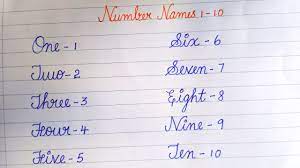 Number Names 1-10
One - 1
Two - 2
Three - 3
Four - 4
Five - 5
Six - 6
Seven - 7
Eight - 8
Nine - 9
Ten - 10